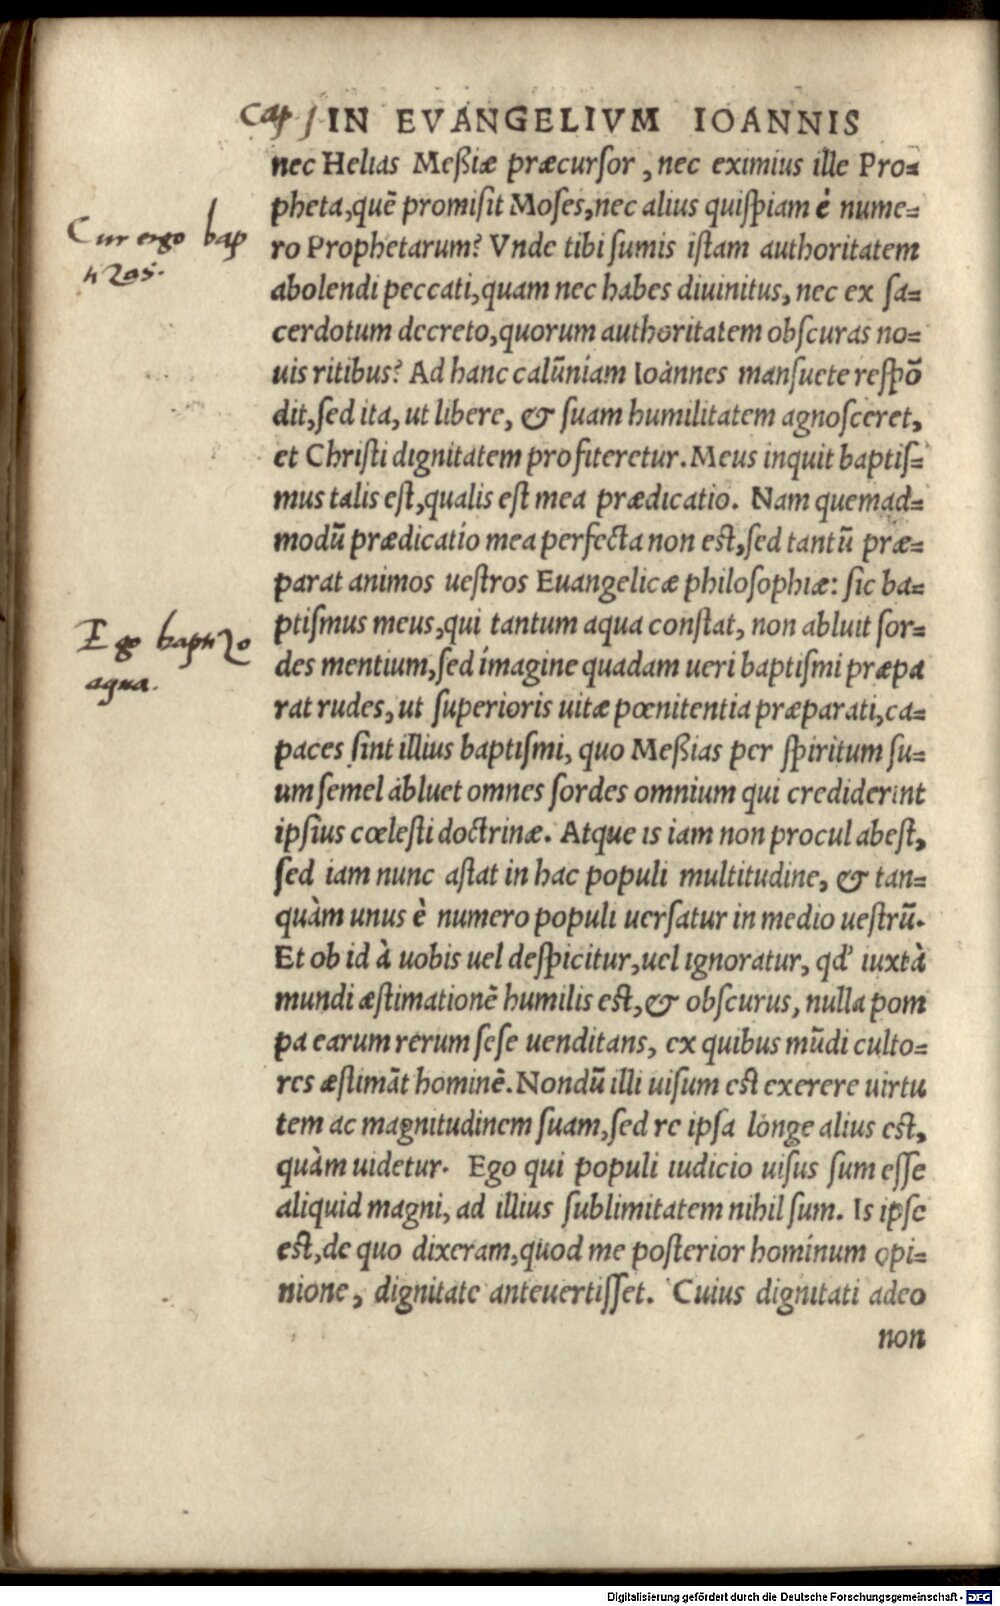 Cap j IN EVANGELIVM IOANNIS
nec Helias Meßiæ præcurſor, nec eximius ille Pro=
pheta, quē promiſit Moſes, nec alius quiſpiam è nume=
Cur ergo bap
tizas.
ro Prophetarum? Vnde tibi ſumis iſtam authoritatem
abolendi peccati, quam nec habes diuinitus, nec ex ſa=
cerdotum decreto, quorum authoritatem obſcuras no=
uis ritibus? Ad hanc calūniam Ioànnes manſuete reſpō
dit, ſed ita, ut libere, & ſuam humilitatem agnoſceret,
et Chriſti dignitatem profiteretur. Meus inquit baptiſ=
mus talis eſt, qualis eſt mea prædicatio. Nam quemad=
modū prædicatio mea perfecta non eſt, ſed tantū præ=
parat animos ueſtros Euangelicæ philoſophiæ: ſic ba=
Ego baptizo
aqua.
ptiſmus meus, qui tantum aqua conſtat, non abluit ſor=
des mentium, ſed imagine quadam ueri baptiſmi præpa
rat rudes, ut ſuperioris uitæ pœnitentia præparati, ca=
paces ſint illius baptiſmi, quo Meßias per ſpiritum ſu=
um ſemel abluet omnes ſordes omnium qui crediderint
ipſius cœleſti doctrinæ. Atque is iam non procul abeſt,
ſed iam nunc aſtat in hac populi multitudine, & tan=
quàm unus è numero populi uerſatur in medio ueſtrū.
Et ob id à uobis uel deſpicitur, uel ignoratur, qd' iuxtà
mundi æſtimationē humilis eſt, & obſcurus, nulla pom
pa earum rerum ſeſe uenditans, ex quibus mūdi culto=
res æſtimāt hominē. Nondū illi uiſum eſt exerere uirtu
tem ac magnitudinem ſuam, ſed re ipſa longe alius eſt,
quàm uidetur. Ego qui populi iudicio uiſus ſum eſſe
aliquid magni, ad illius ſublimitatem nihil ſum. Is ipſe
eſt, de quo dixeram, quod me poſterior hominum opi=
nione, dignitate anteuertiſſet. Cuius dignitati adeo
non
Digitalisierung gefördert durch die Deutsche Forschungsgemeinschaft - DFG